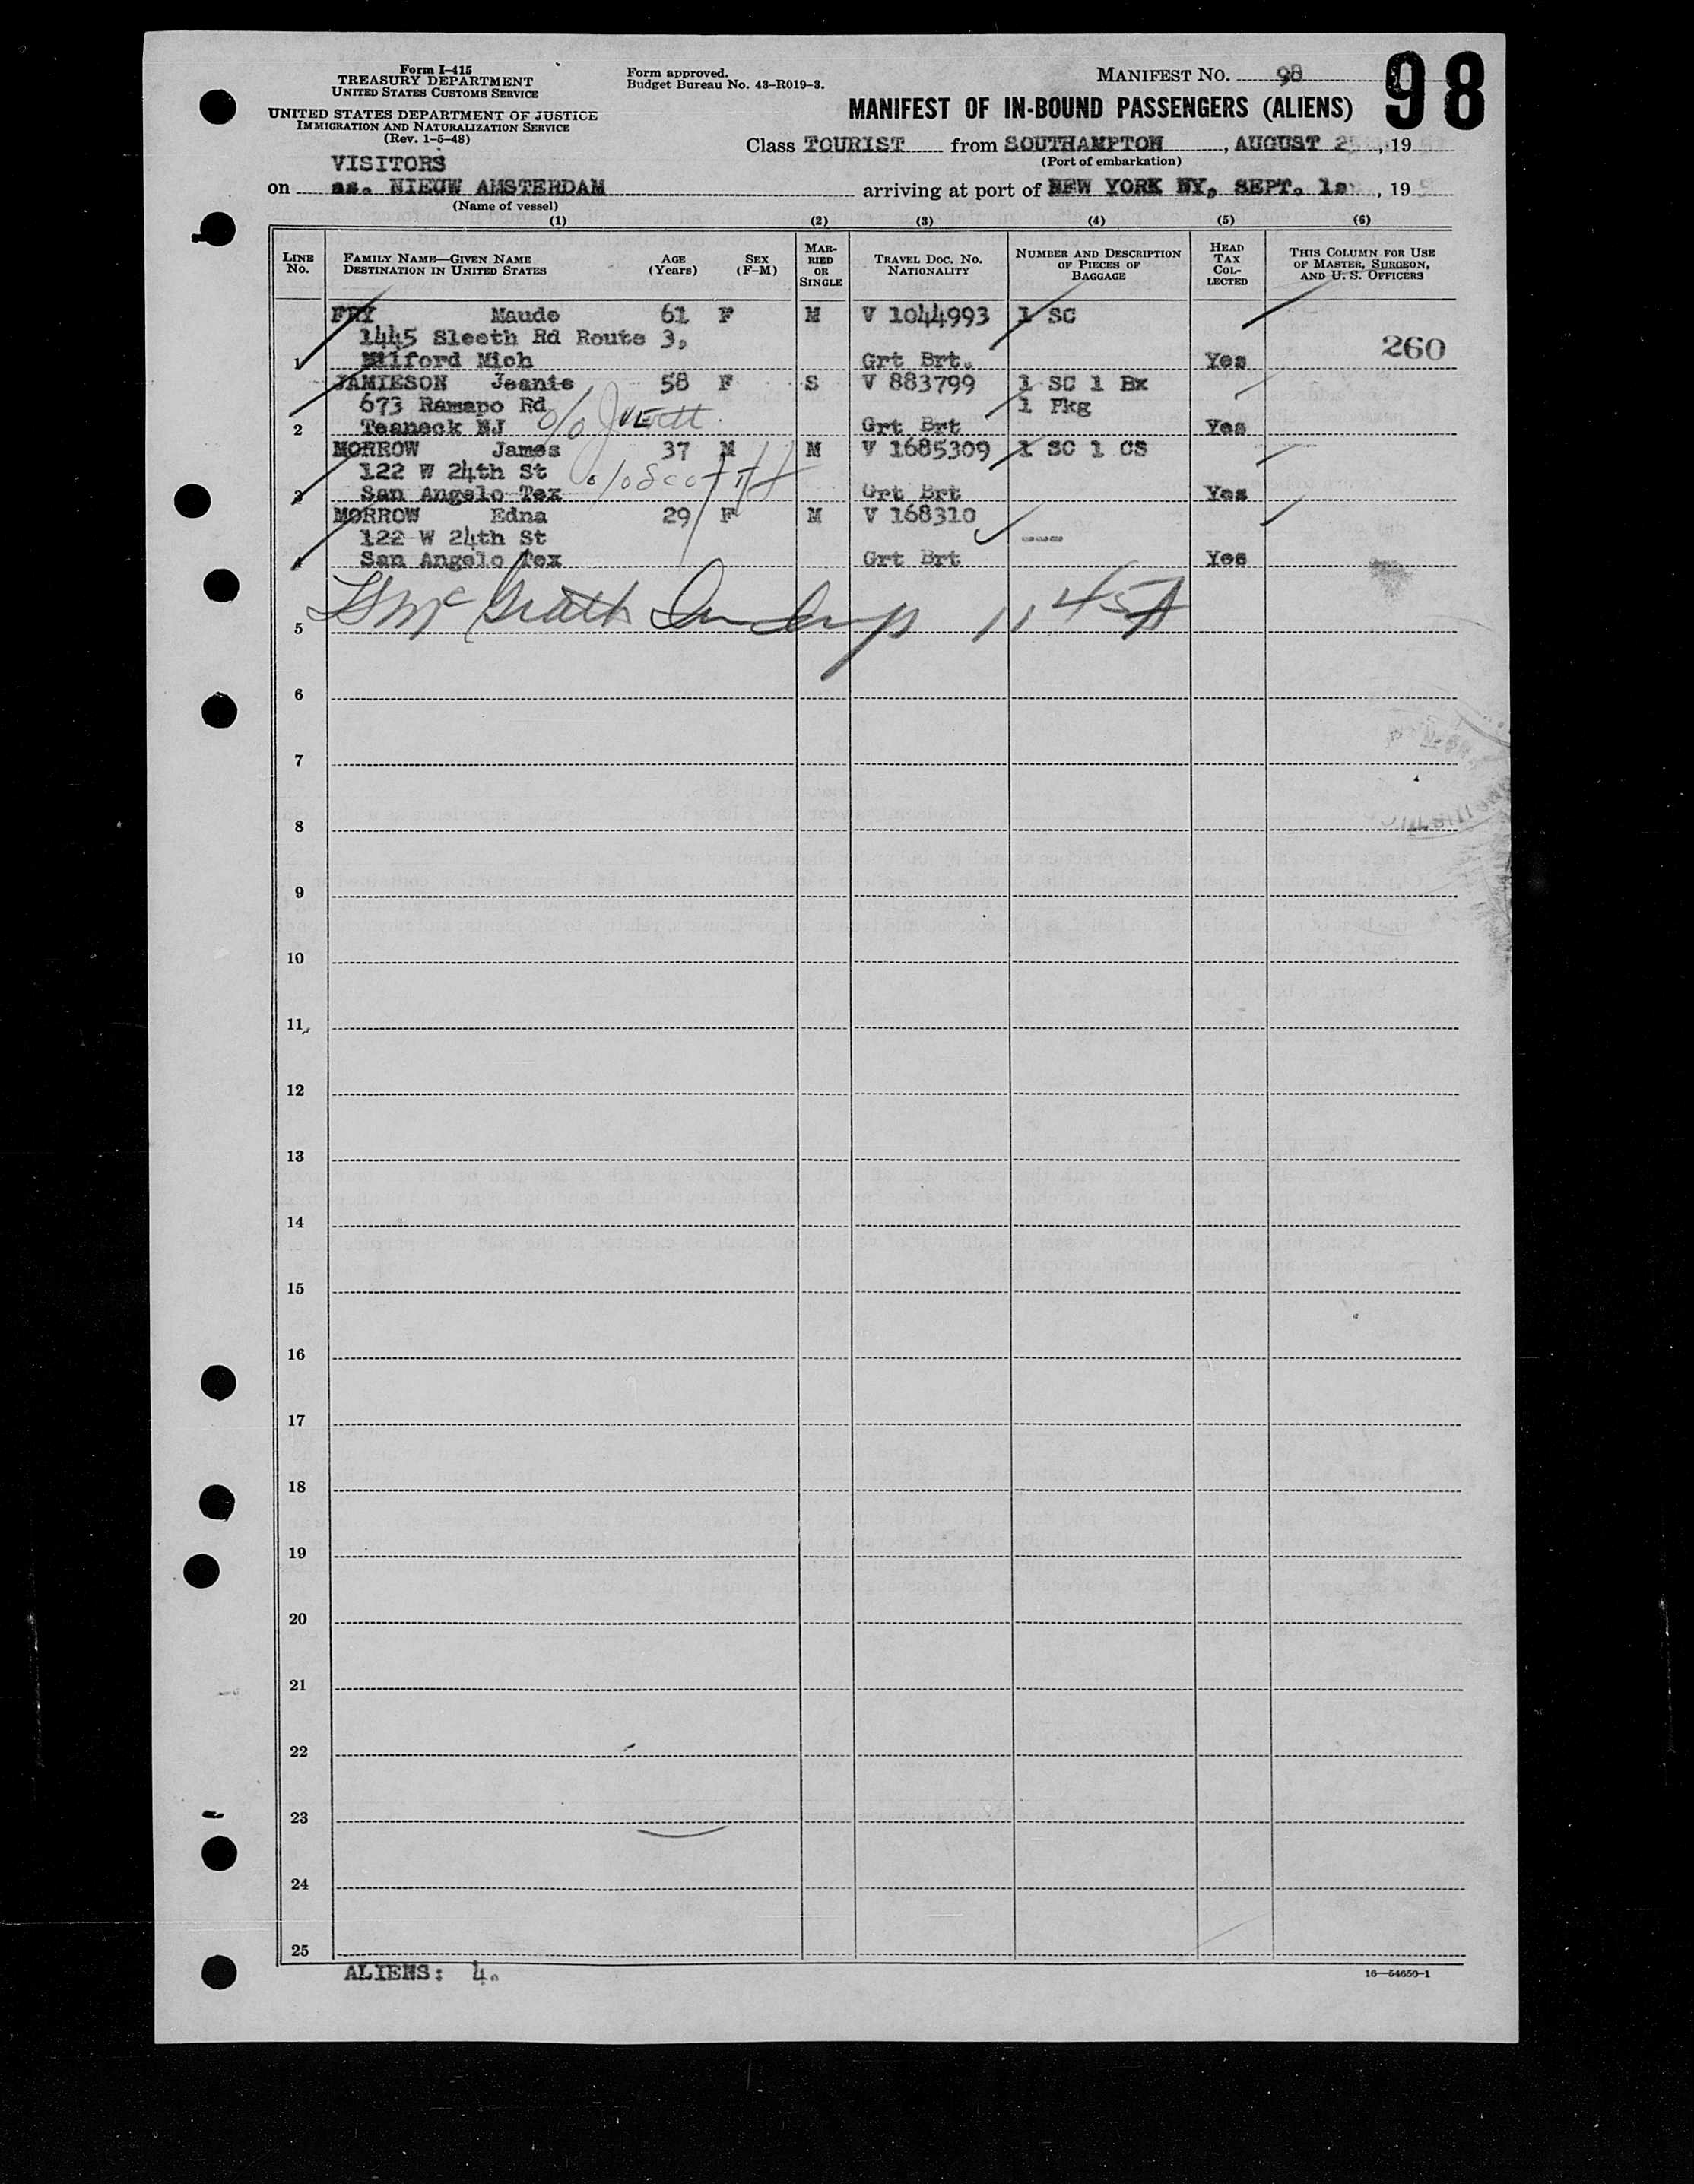 Form I-415
TREASURY DEPARTMENT
UNITED STATES CUSTOMS SERVICE
UNITED STATES DEPARTMENT OF JUSTICE
IMMIGRATION AND NATURALIZATION SERVICE
(Rev. 1-5-48)
Form approved.
Budget Bureau No. 43-R019-3.
MANIFEST NO. 98
98
MANIFEST OF IN-BOUND PASSENGERS (ALIENS)
Class TOURIST from SOUTHAMPTON, AUGUST 2 , 19
(Port of embarkation)
VISITORS
on ss. NIEUW AMSTERDAM arriving at port of NEW YORK NY, SEPT. 1s , 19
(Name of vessel)
(1) (2) (3) (4) (5) (6)
LINE No. FAMILY NAME—GIVEN NAME DESTINATION IN UNITED STATES AGE (Years) SEX (F-M) MARRIED OR SINGLE TRAVEL DOC. NO. NATIONALITY NUMBER AND DESCRIPTION OF PIECES OF BAGGAGE HEAD TAX COLLECTED THIS COLUMN FOR USE OF MASTER, SURGEON, AND U. S. OFFICERS
FRY Maude 61 F M V 1044993 1 SC
1445 Sleeth Rd Route 3,
1 Milford Mich Grt Brt. Yes 260
JAMIESON Jeanie 58 F S V 883799 1 SC 1 Bx
673 Ramapo Rd 1 Pkg
2 Teaneck NJ Grt Brt Yes
MORROW James 37 M M V 1685309 1 SC 1 CS
122 W 24th St
3 San Angelo Tex Grt Brt Yes
MORROW Edna 29 F M V 168310
122 W 24th St ----
4 San Angelo Tex Grt Brt Yes
5 McGrath 11 45A
6
7
8
9
10
11
12
13
14
15
16
17
18
19
20
21
22
23
24
25
ALIENS: 4.
16—54650-1